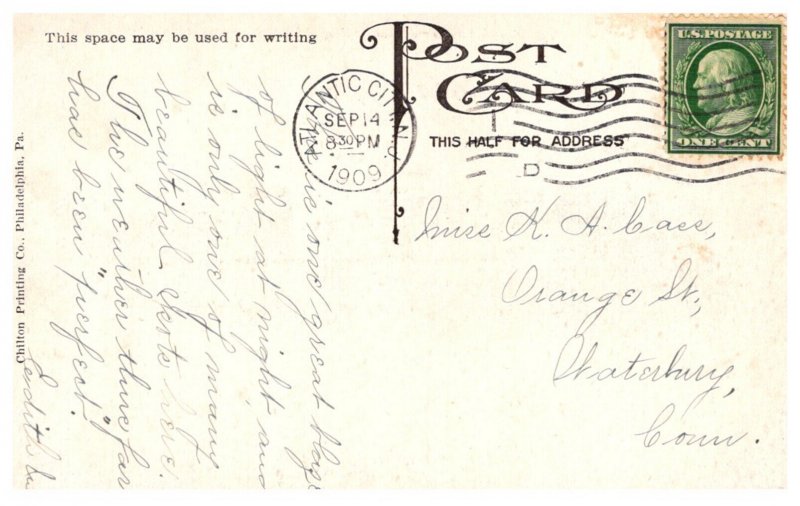 This space may be used for writing
POST CARD
THIS HALF FOR ADDRESS
U.S. POSTAGE
ONE CENT
ATLANTIC CITY N.J.
SEP 14
8 30 PM
1909
D
Miss K. A. Cass,
Orange St,
Waterbury,
Conn.
This is one great blaze
of light at night and
is only one of many
beautiful spots here.
The weather thus far
has been "perfect."
Chilton Printing Co., Philadelphia, Pa.